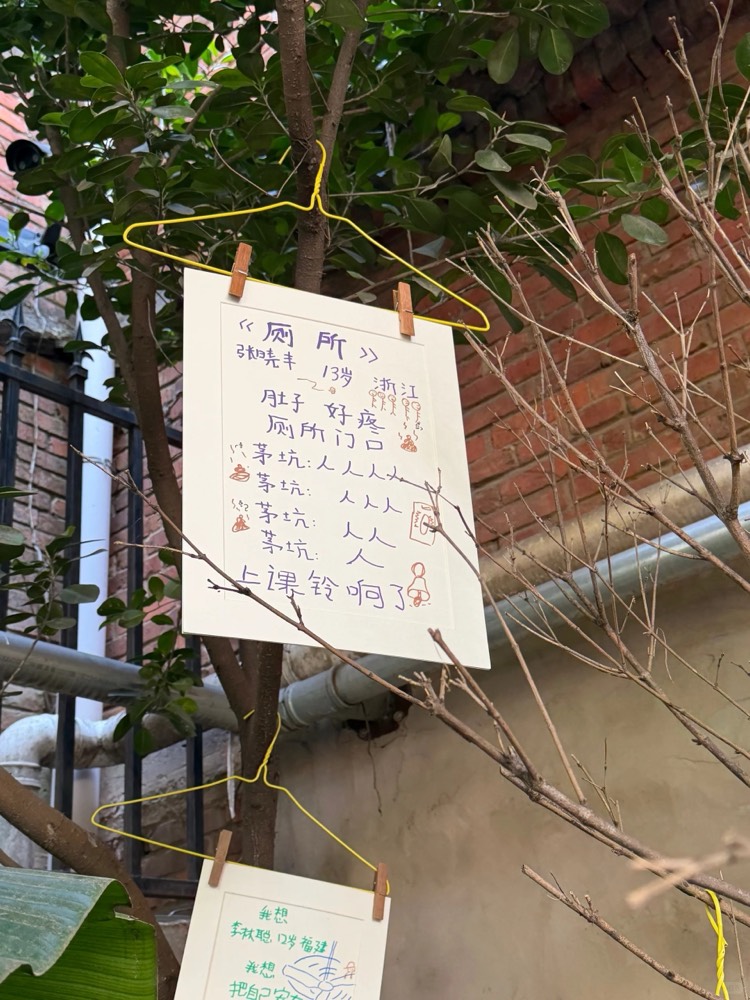 《厕所》
张晓丰 13岁 浙江
肚子 好疼
厕所门口
茅坑:人人人人
茅坑: 人人人
茅坑: 人人
茅坑: 人
上课铃响了
我想
李秋聪 12岁 福建
我想
把自己